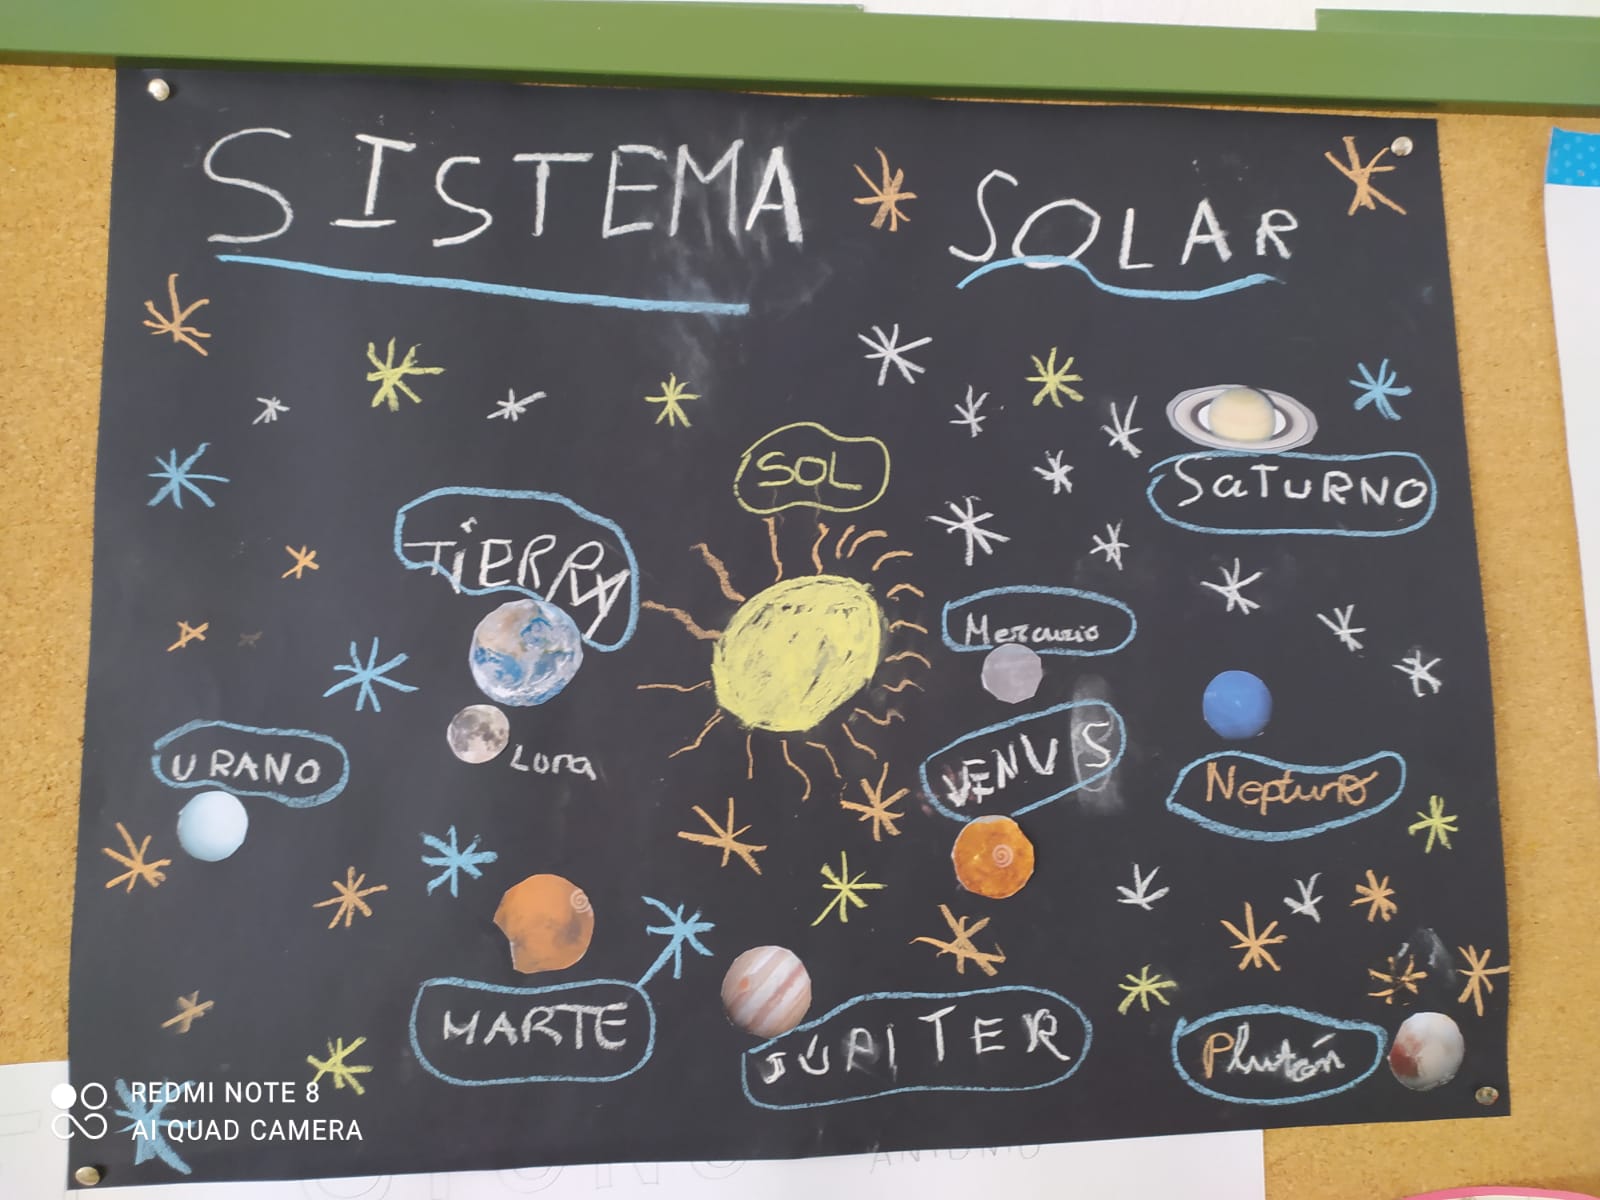 SISTEMA SOLAR
SOL
SaTURNO
TiERRA
Mercurio
VENUS
URANO
Luna
Neptuno
MARTE
JÚPITER
Plutón
REDMI NOTE 8
AI QUAD CAMERA
ANTONIO